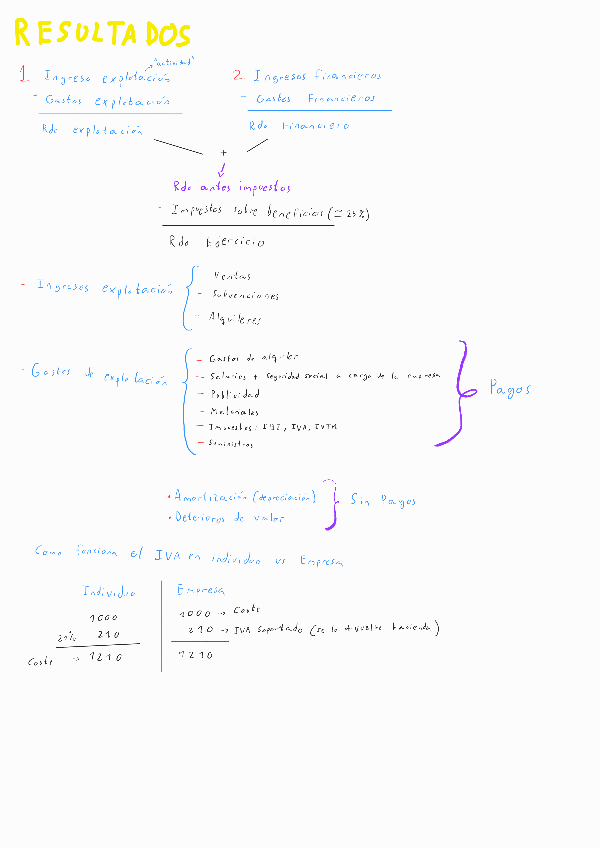 RESULTADOS
"actividad"
1. Ingreso explotación
- Gastos explotación
Rdo explotación
2. Ingresos Financieros
- Gastos Financieros
Rdo Financiero
+
Rdo antes impuestos
- Impuestos sobre beneficios (≃ 25%)
Rdo Ejercicio
- Ingresos explotación
- Ventas
- Subvenciones
- Alquileres
- Gastos de explotación
- Gastos de alquiler
- Salarios + Seguridad social a cargo de la empresa
- Publicidad
- Materiales
- Impuestos: IBI, IVA, IVTM
- Suministros
Pagos
• Amortización (depreciación)
• Deterioros de valor
Sin Pagos
Como funciona el IVA en individuo vs Empresa
Individuo
1000
21% 210
Coste → 1210
Empresa
1000 → Coste
210 → IVA Soportado (se lo devuelve hacienda)
1210